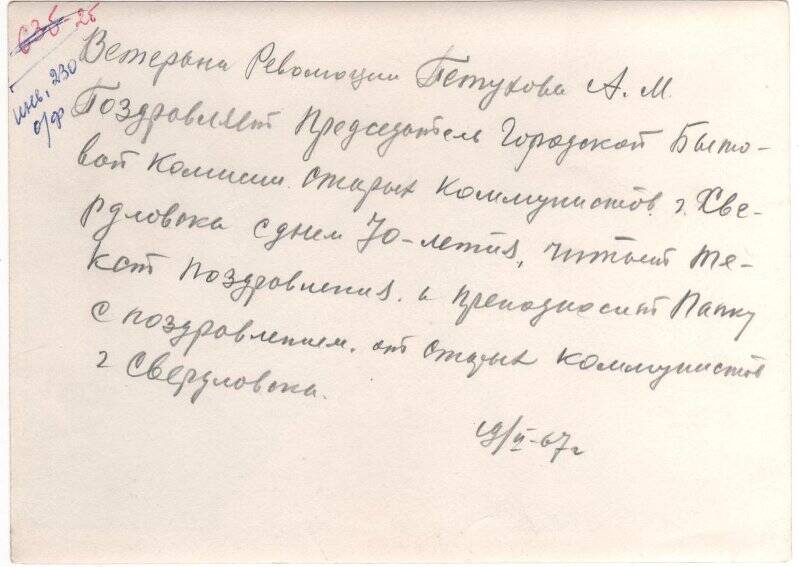 635 26
инв. 230
о/ф
Ветерана Революции Петухова А.М.
Поздравляет Председатель Городской Быто-
вой Комисии старых коммунистов. г. Све-
рдловска с днем 70-летия, читает те-
кст поздравления. и преподносит Папку
с поздравлением. от старых коммунистов
г Свердловска.
19/II-67г